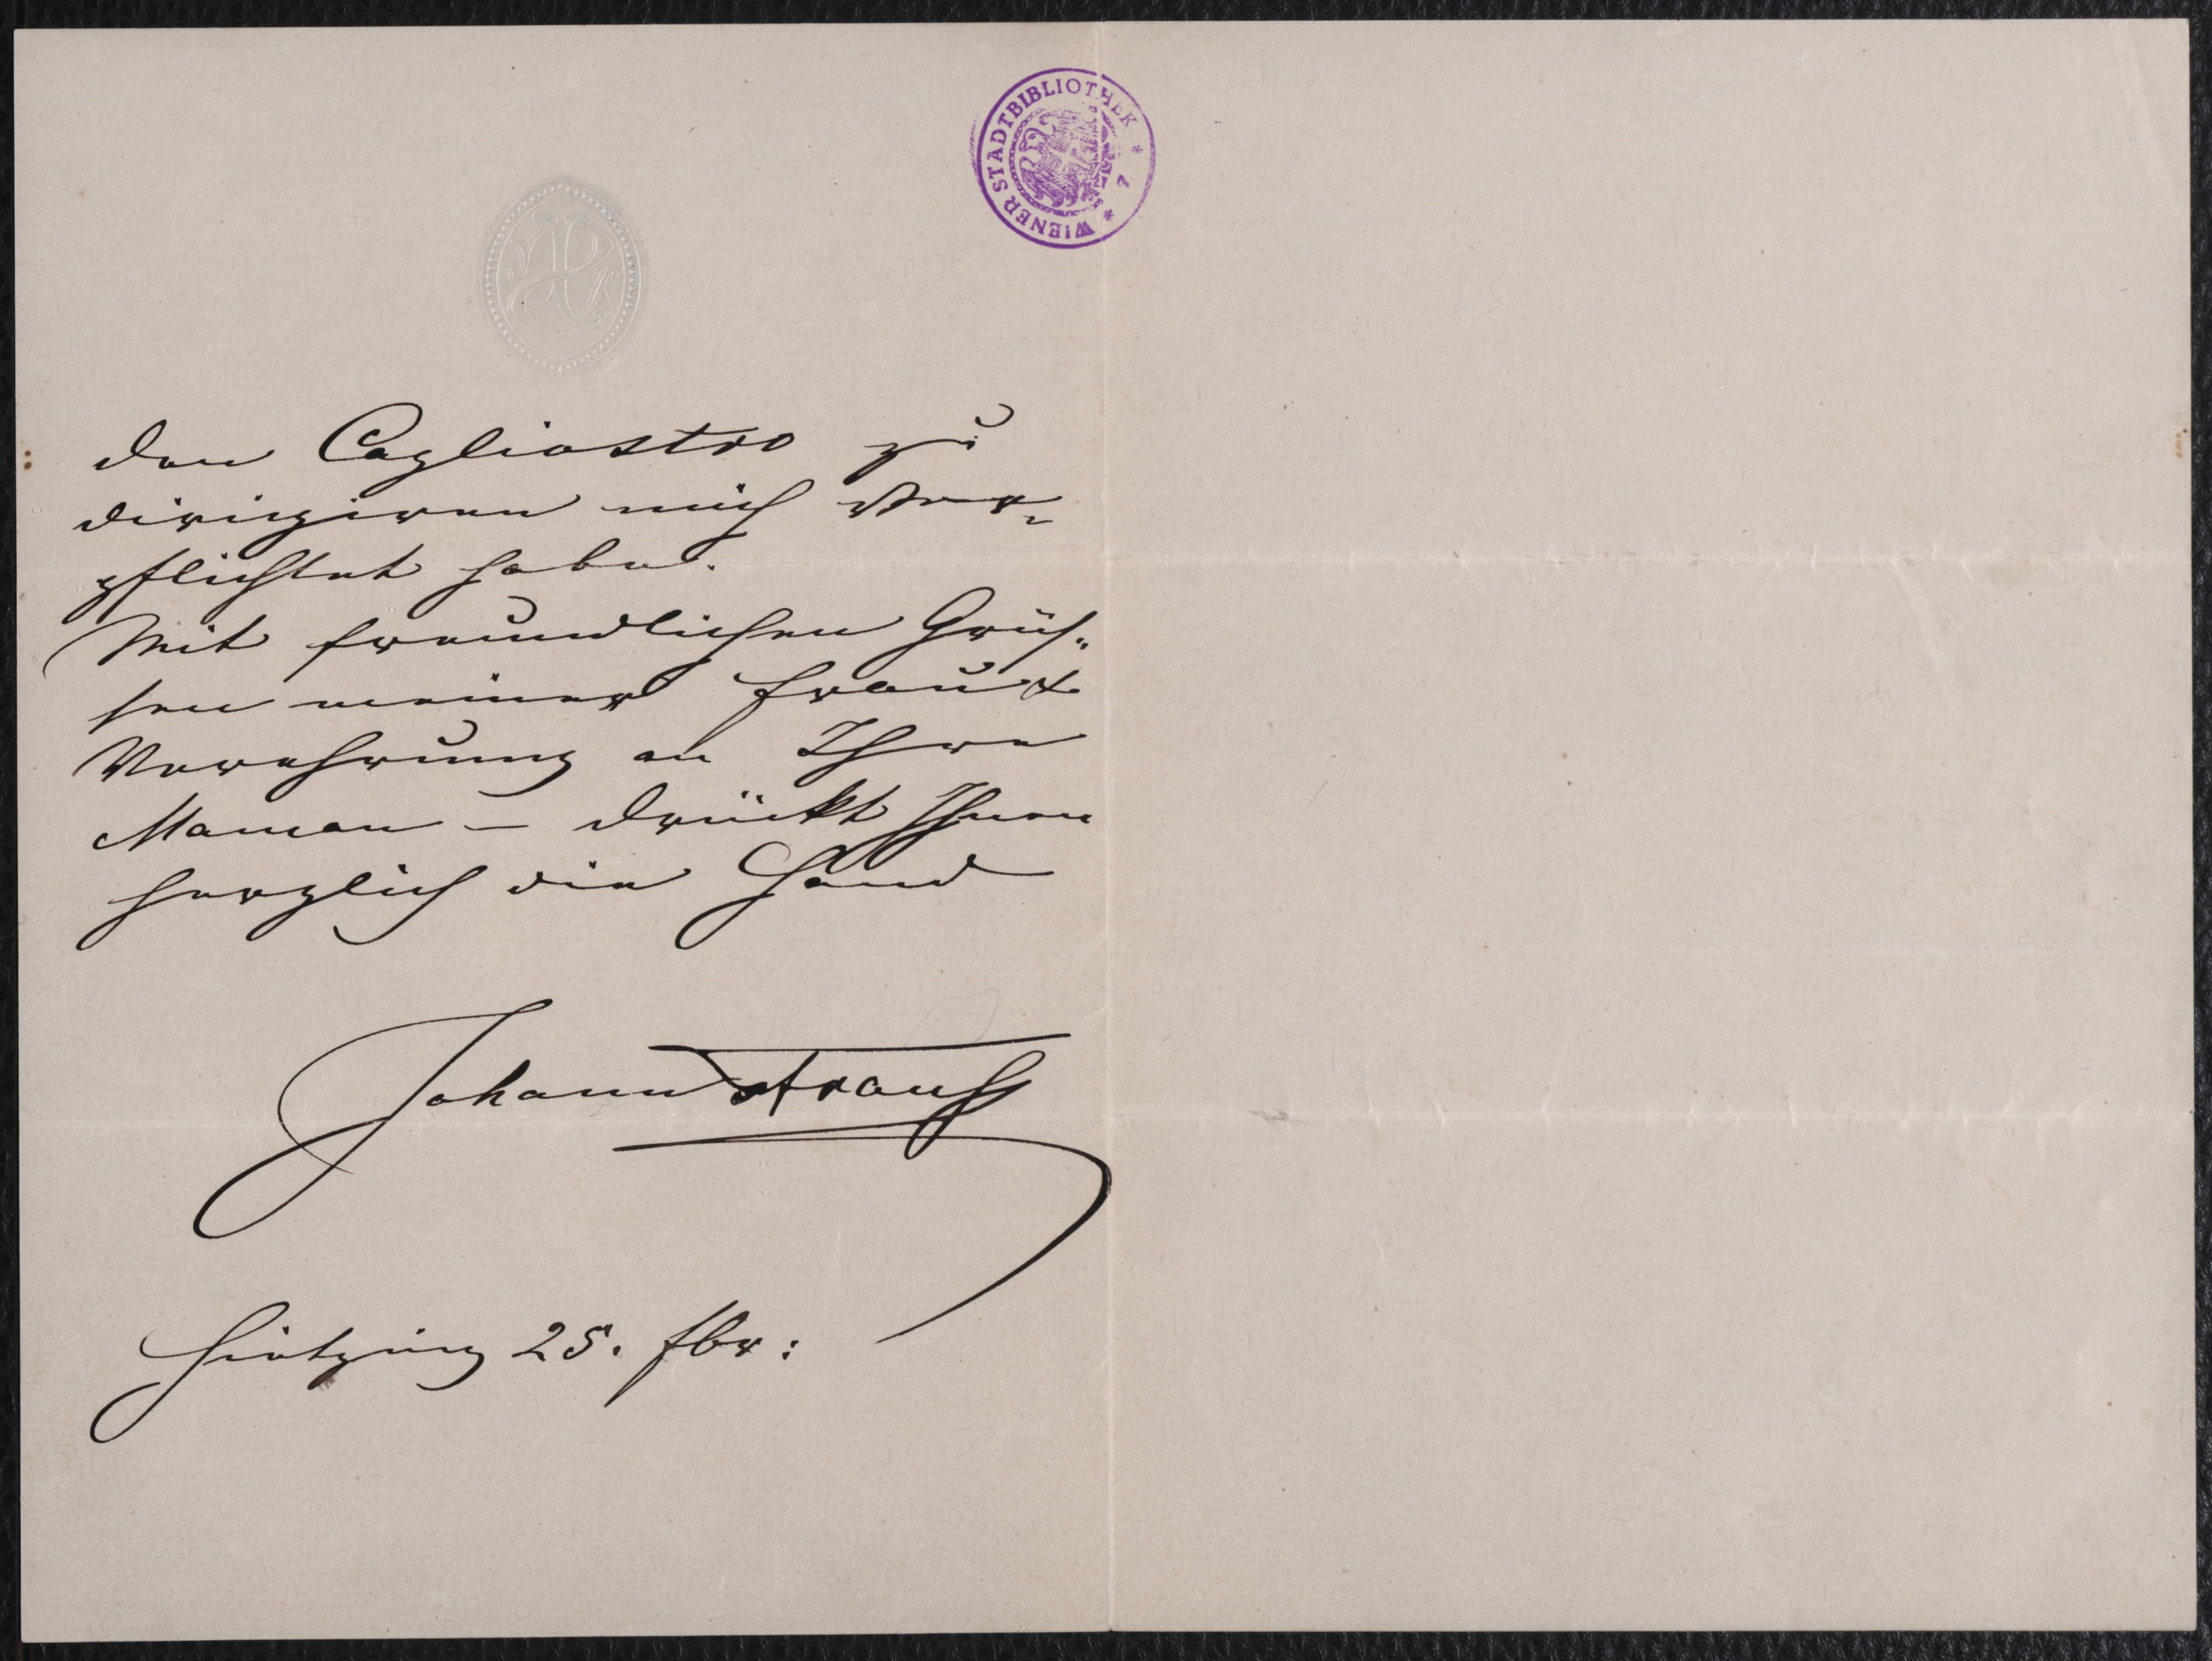 WIENER STADTBIBLIOTHEK * 7 *
den Cagliostro zu
dirigiren mich ver-
pflichtet habe.
Mit freundlichen Grüs-
sen meiner Frau &
Verehrung an Ihre
Maman – drückt Ihnen
herzlich die Hand
Johann Strauß
Hietzing 25. fbr: